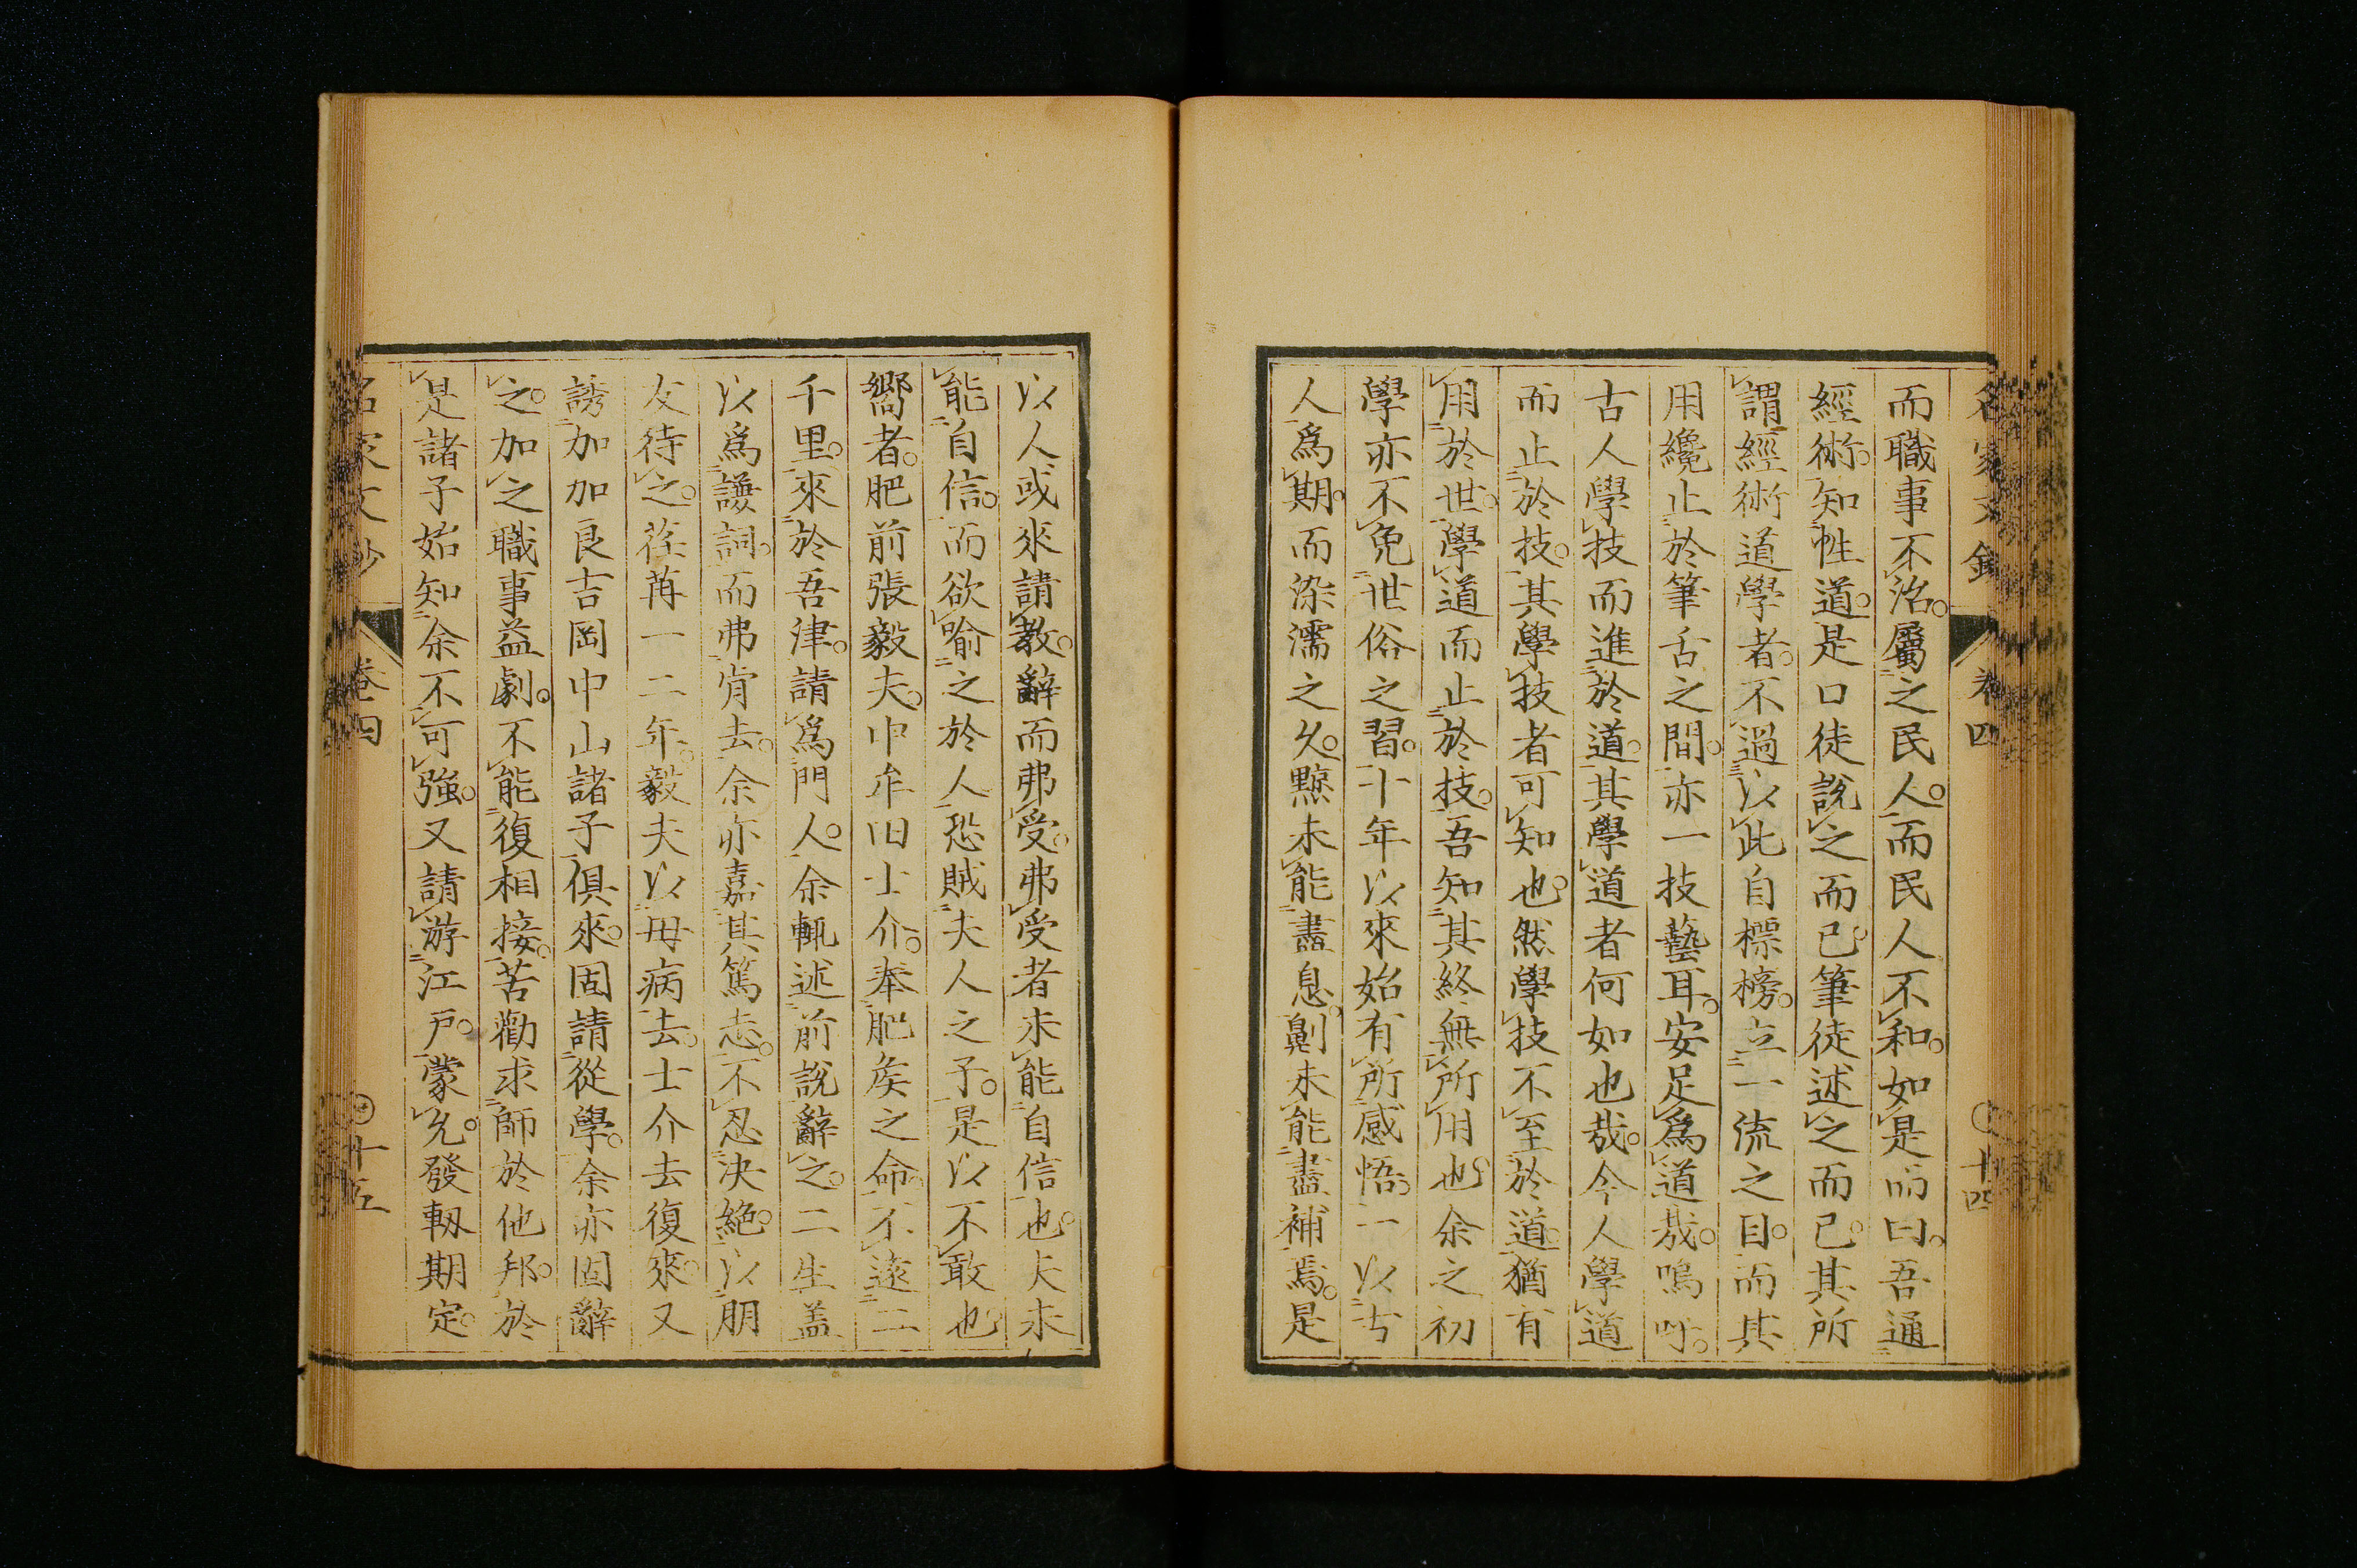 而職事不治。屬之民人。而民人不和。如是而曰。吾通
經術。知性道。是口徒說之而已。筆徒述之而已。其所
謂經術道學者。不過以此自標榜。立一流之目。而其
用纔止於筆舌之間。亦一技藝耳。安足爲道哉。嗚呼。
古人學技而進於道。其學道者何如也哉。今人學道
而止於技。其學技者可知也。然學技不至於道。猶有
用於世。學道而止於技。吾知其終無所用也。余之初
學亦不免世俗之習。十年以來始有所感悟。一以古
人爲期。而染濡之久。黥未能盡息。劓未能盡補焉。是
以人或來請教。辭而弗受。弗受者未能自信也。夫未
能自信。而欲喻之於人。恐賊夫人之子。是以不敢也
嚮者。肥前張毅夫。中牟田士介。奉肥矦之命。不遠二
千里。來於吾津。請爲門人。余輒述前說辭之。二生盖
以爲謙詞。而弗肯去。余亦嘉其篤志。不忍决絶。以朋
友待之。荏苒一二年。毅夫以母病去。士介去復來。又
誘加加良吉岡中山諸子俱來。固請從學。余亦固辭
之。加之職事益劇。不能復相接。苦勸求師於他邦。於
是諸子始知余不可強。又請游江戸。蒙允。發軔期定。
名家文鈔
卷四
十五